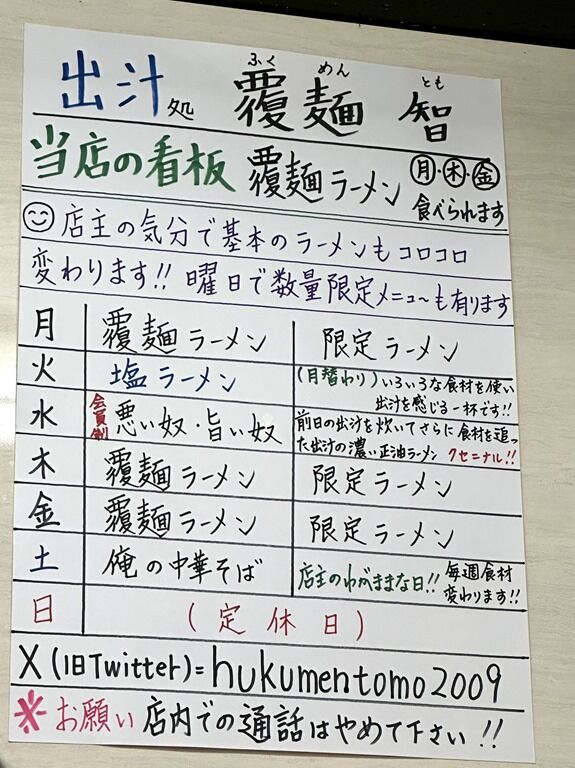 ふく めん とも
出汁処 覆麺 智
当店の看板 覆麺ラーメン 月・木・金
食べられます
店主の気分で基本のラーメンもコロコロ
変わります!! 曜日で数量限定メニューも有ります
月 覆麺ラーメン 限定ラーメン
火 塩ラーメン (月替わり)いろいろな食材を使い
出汁を感じる一杯です!!
水 会員制 悪い奴・旨い奴 前日の出汁を炊いてさらに食材を追っ
た出汁の濃い正油ラーメン クセニナル!!
木 覆麺ラーメン 限定ラーメン
金 覆麺ラーメン 限定ラーメン
土 俺の中華そば 店主のわがままな日!! 毎週食材
変わります!!
日 (定休日)
X(旧Twitter)=hukumentomo2009
※お願い 店内での通話はやめて下さい!!